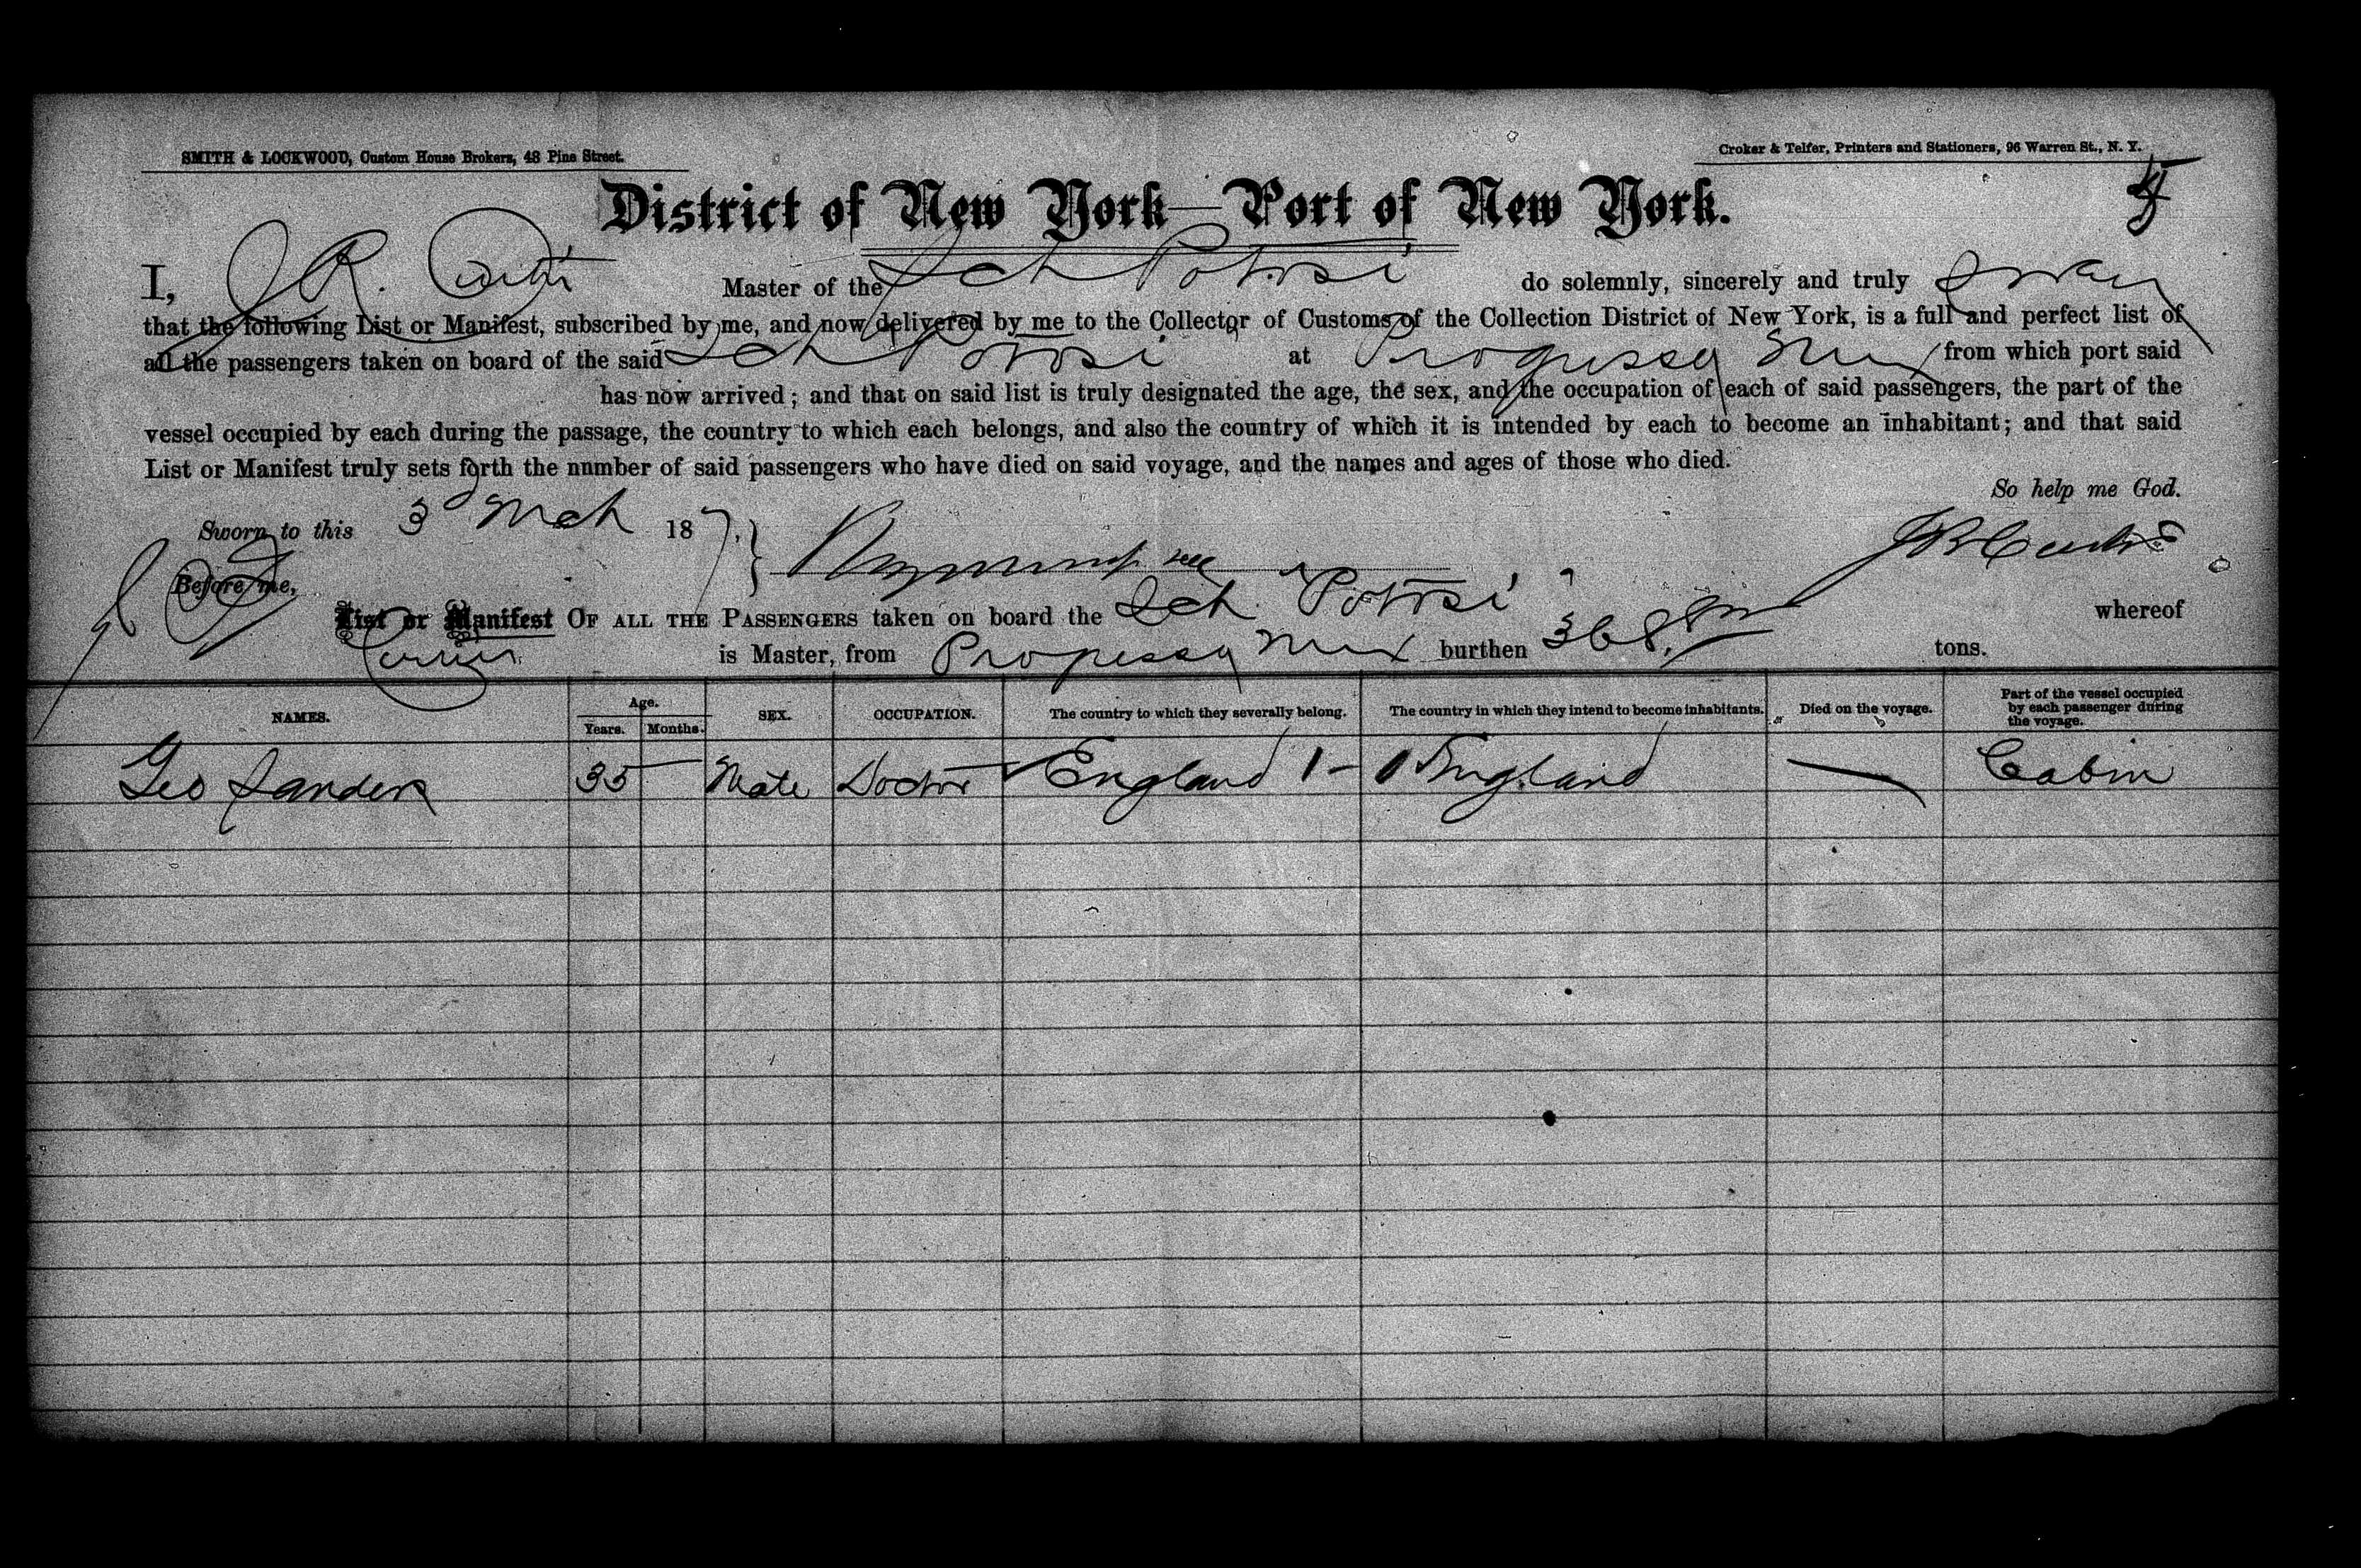 SMITH & LOCKWOOD, Custom House Brokers, 48 Pine Street.
Croker & Telfer, Printers and Stationers, 96 Warren St., N. Y.
District of New York—Port of New York.
I, J R. Master of the Sch Potosi do solemnly, sincerely and truly swear
that the following List or Manifest, subscribed by me, and now delivered by me to the Collector of Customs of the Collection District of New York, is a full and perfect list of
all the passengers taken on board of the said Sch Potosi at from which port said
has now arrived; and that on said list is truly designated the age, the sex, and the occupation of each of said passengers, the part of the
vessel occupied by each during the passage, the country to which each belongs, and also the country of which it is intended by each to become an inhabitant; and that said
List or Manifest truly sets forth the number of said passengers who have died on said voyage, and the names and ages of those who died.
So help me God.
Sworn to this 3d Mch 187
Before me,
List or Manifest OF ALL THE PASSENGERS taken on board the Sch. Potosi whereof
is Master, from burthen 368 tons.
NAMES. Age. Years. Months. SEX. OCCUPATION. The country to which they severally belong. The country in which they intend to become inhabitants. Died on the voyage. Part of the vessel occupied by each passenger during the voyage.
Geo Sanders 35 Male Doctor England 1 - England — Cabin